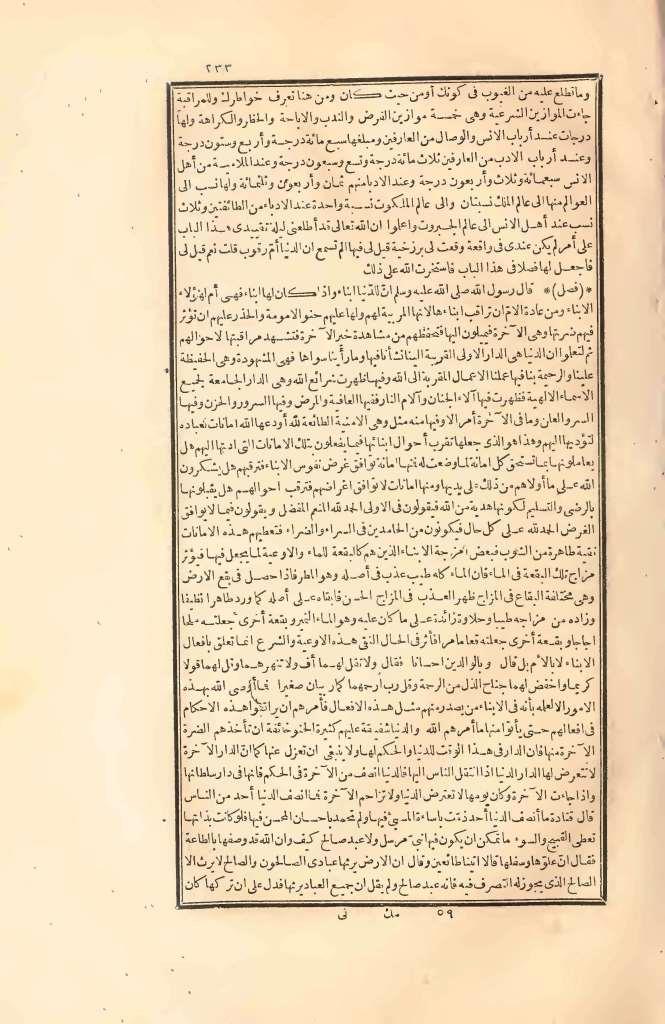 ٢٣٣
وما تطلع عليه من الغيوب فى كونك أو من حيث كان ومن هنا تعرف خواطرك وللمراقبة
جاءت الموازين الشرعية وهى خمسة موازين الفرض والندب والاباحة والحظر والكراهة ولها
درجات عند أرباب الانس والوصال من العارفين ومبلغها سبع مائة درجة وأربع وستون درجة
وعند أرباب الادب من العارفين ثلاث مائة درجة وتسع وسبعون درجة وعند الملامية من أهل
الانس سبعمائة وثلاث وأربعون درجة وعند الادباء منهم ثمان وأربعون وثلثمائة ولها نسب الى
العوالم منها الى عالم الملك نسبتان والى عالم الملكوت نسبة واحدة عند الادباء من الطائفتين وثلاث
نسب عند أهل الانس الى عالم الجبروت واعلموا ان الله تعالى قد أطلعنى ليلة تقييدى هذا الباب
على أمر لم يكن عندى فى واقعة وقعت لى برزخية قيل لى فيها ألم تسمع ان الدنيا أم رقوب قلت نعم قيل لى
فاجعل لها فصلا فى هذا الباب فاستخرت الله على ذلك
* (فصل) * قال رسول الله صلى الله عليه وسلم ان للدنيا ابناء واذا كان لها ابناء فهى أم لهؤلاء
الابناء ومن عادة الام ان تراقب ابناءها لانها المربية لهم ولها عليهم حنو الامومة والحذر عليهم ان تؤثر
فيهم ضرتها وهى الآخرة فيميلون اليها فتحفظهم من مشاهدة خير الآخرة فتشهد مراقبتها لاحوالهم
ثم لتعلموا ان الدنيا هى الدار الاولى القريبة الينا نشأنا فيها وما رأينا سواها فهى المشهودة وهى الحفيظة
علينا والرحيمة بنا فيها عملنا الاعمال المقربة الى الله وفيها ظهرت شرائع الله وهى الدار الجامعة لجميع
الاسماء الالهية فظهرت فيها آلاء الجنان وآلام النار ففيها العافية والمرض وفيها السرور والحزن وفيها
السر والعلن وما فى الآخرة أمر الا وفيها منه مثل وهى الامينة الطائعة لله أودعها الله امانات لعباده
لتؤديها اليهم وهذا هو الذى جعلها تقرب أحوال ابنائها فيما يفعلون بتلك الامانات التى ادتها اليهم هل
يعاملونها بما تستحق كل امانة لما وضعت له فمنها امانة توافق غرض نفوس الابناء فترقبهم هل يشكرون
الله على ما أولاهم من ذلك على يديها ومنها امانات لا توافق اغراضهم فترقب احوالهم هل يقبلونها
بالرضى والتسليم لكونها هدية من الله فيقولون فى الاولى الحمد لله المنعم المفضل ويقولون فيما لا يوافق
الغرض الحمد لله على كل حال فيكونون من الحامدين فى السراء والضراء فتعطيهم هذه الامانات
نقية طاهرة من الشوب فبعض امزجة الابناء الذين هم كالبقعة للماء والاوعية لما يجعل فيها فيؤثر
مزاج تلك البقعة فى الماء فان الماء كله طيب عذب فى أصله وهو المطر فاذا حصل فى بقع الارض
وهى مختلفة البقاع فى المزاج ظهر العذب فى المزاج الحسن فابقاه على أصله كما ورد طاهرا نظيفا
وزاده من مزاجه طيبا وحلاوة زائدة على ما كان عليه وهو الماء النمير وبقعة أخرى جعلته ملحا
اجاجا وبقعة أخرى جعلته قعاما مرا فأثر فى الحال النقى هذه الاوعية والشرع انما تعلق بافعال
الابناء لا بالام بل قال وبالوالدين احسانا فقال ولا تقل لهما أف ولا تنهرهما وقل لهما قولا
كريما واخفض لهما جناح الذل من الرحمة وقل رب ارحمهما كما ربيانى صغيرا فما أوصى الله بهذه
الامور الا لعلمه بأنه فى الابناء من يصدر منهم مثل هذه الافعال فأمرهم ان يراقبوا هذه الاحكام
فى افعالهم حتى يأتوا منها ما أمرهم الله والدنيا شفيقة عليهم كثيرة الحنو خائفة ان تأخذهم الضرة
الآخرة منها فان الدار فى هذا الوقت للدنيا والحكم لها ولا ينبغى ان تعزل عنها كما ان الدار الآخرة
لا تتعرض لها الدار الدنيا اذا انتقل الناس اليها فالدنيا انصف من الآخرة فى الحكم فانها فى دار سلطانها
واذا جاءت الآخرة وكان يومها لا تعترض الدنيا ولا تزاحم الآخرة فما انصف الدنيا أحد من الناس
قال قتادة ما أنصف الدنيا أحد ذمت باساءة المسىء فيها ولم تحمد باحسان المحسن فيها فلو كانت بذاتها
تعطى القبيح والسوء ما تمكن ان يكون فيها نبى مرسل ولا عبد صالح كيف وان الله قد وصفها بالطاعة
فقال ان علوها وسفلها قالا اتينا طائعين وقال ان الارض يرثها عبادى الصالحون والصالح لا يرث الا
الصالح الذى يجوز له التصرف فيه فانه عبد صالح ولم يقل ان جميع العباد يرثها فدل على ان تركها كان
٥٩ مك نى